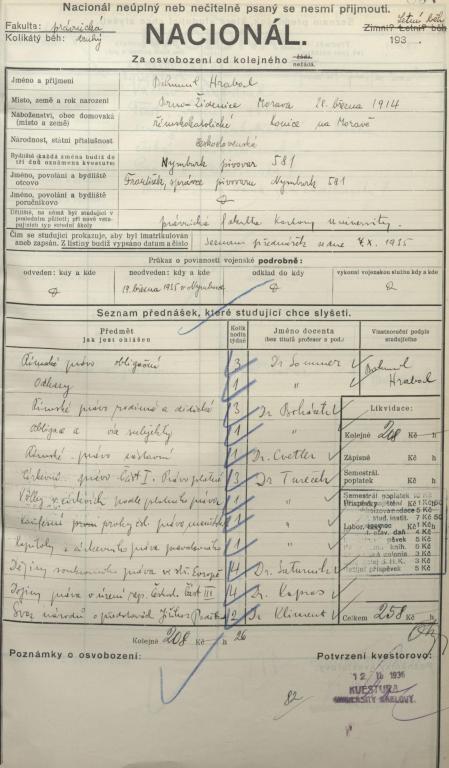 Nacionál neúplný neb nečitelně psaný se nesmí přijmouti.
Fakulta: právnická
Kolikátý běh: druhý
NACIONÁL.
Letní běh
Zimní? Letní? běh
193
Za osvobození od kolejného žádá.
nežádá.
Jméno a příjmení Bohumil Hrabal
Místo, země a rok narození Brno-Židenice Morava 28. března 1914
Náboženství, obec domovská (místo a země) římskokatolické na Moravě
Národnost, státní příslušnost československá
Bydliště (každá změna budiž do tří dnů oznámena kvestuře) Nymburk pivovar 581
Jméno, povolání a bydliště otcovo František, správce pivovaru Nymburk 581
Jméno, povolání a bydliště poručníkovo
Učiliště, na němž byl studující v posledním půlletí; při nově vstupujících typ střední školy právnická fakulta Karlovy university.
Čím se studující prokazuje, aby byl imatrikulován aneb zapsán. Z listiny budiž vypsáno datum a číslo Seznam přednášek z dne X. 1935
Průkaz o povinnosti vojenské podrobně:
odveden: kdy a kde
neodveden: kdy a kde
odklad do kdy
vykonal vojenskou službu kdy a kde
19. března 1935 v Nymburce
Seznam přednášek, které studující chce slyšeti.
Předmět
jak jest ohlášen
Kolik hodin týdně
Jméno docenta
(bez titulů profesor a pod.)
Vlastnoruční podpis studujícího
Římské právo obligační 3 Dr Sommer Bohumil
1 " Hrabal
Římské právo rodinné a dědické 3 Dr Boháček
1 "
Římské právo 1 Dr. Cvetler
Církevní právo část I. Právo platné 3 Dr Tureček
podle platného práva 1 "
1 "
Kapitoly z církevního práva 1 "
Dějiny soukromého práva ve stř. Evropě 4 Dr. Saturník
Dějiny práva v území rep. Českosl. část III 4 Dr. Kapras
Svaz národů 2 Dr Kliment
Likvidace:
Kolejné 208 Kč h
Zápisné Kč h
Semestrál. poplatek Kč h
Příspěvky
Labor. taxy
Celkem 258 Kč h
Kolejné 208 Kč h 26
Poznámky o osvobození:
Potvrzení kvestorovo:
82
12 1936
KVESTURA
UNIVERSITY KARLOVY